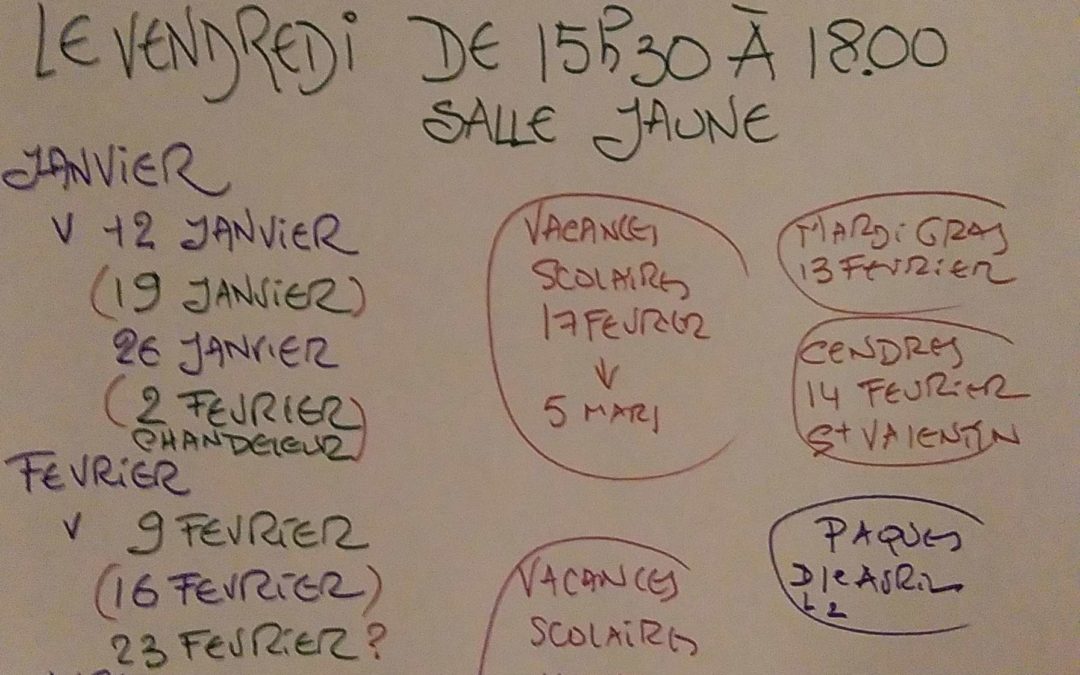 LE VENDREDI DE 15h30 À 18.00
SALLE JAUNE
JANVIER
V 12 JANVIER
(19 JANVIER)
26 JANVIER
(2 FEVRIER)
CHANDELEUR
FEVRIER
V 9 FEVRIER
(16 FEVRIER)
23 FEVRIER?
VACANCES
SCOLAIRES
17 FEVRIER
↓
5 MARS
MARDI GRAS
13 FEVRIER
CENDRES
14 FEVRIER
St VALENTIN
PAQUES
D 1er AVRIL
L 2
VACANCES
SCOLAIRES